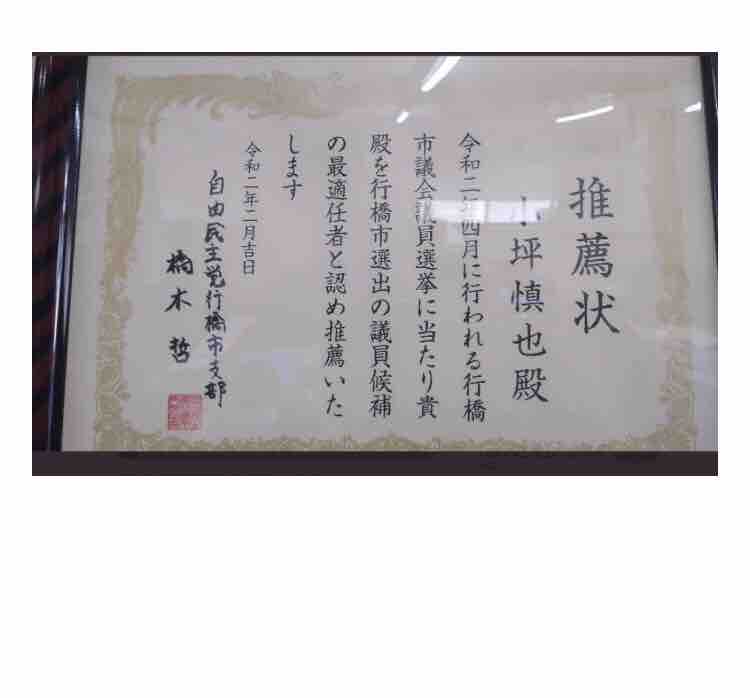 推薦状
小坪慎也殿
令和二年四月に行われる行橋
市議会議員選挙に当たり貴
殿を行橋市選出の議員候補
の最適任者と認め推薦いた
します
令和二年二月吉日
自由民主党行橋市支部
楠木哲